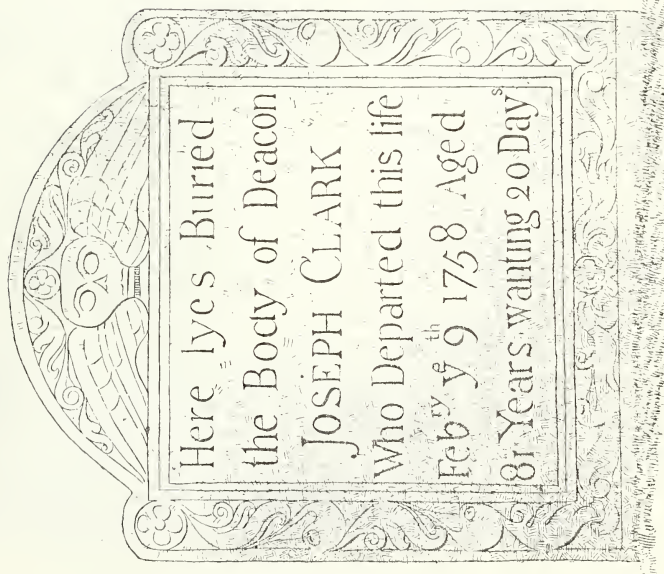 Here lyes Buried
the Body of Deacon
JOSEPH CLARK
Who Departed this life
Febry ye 9th 1758 Aged
81 Years wanting 20 Days